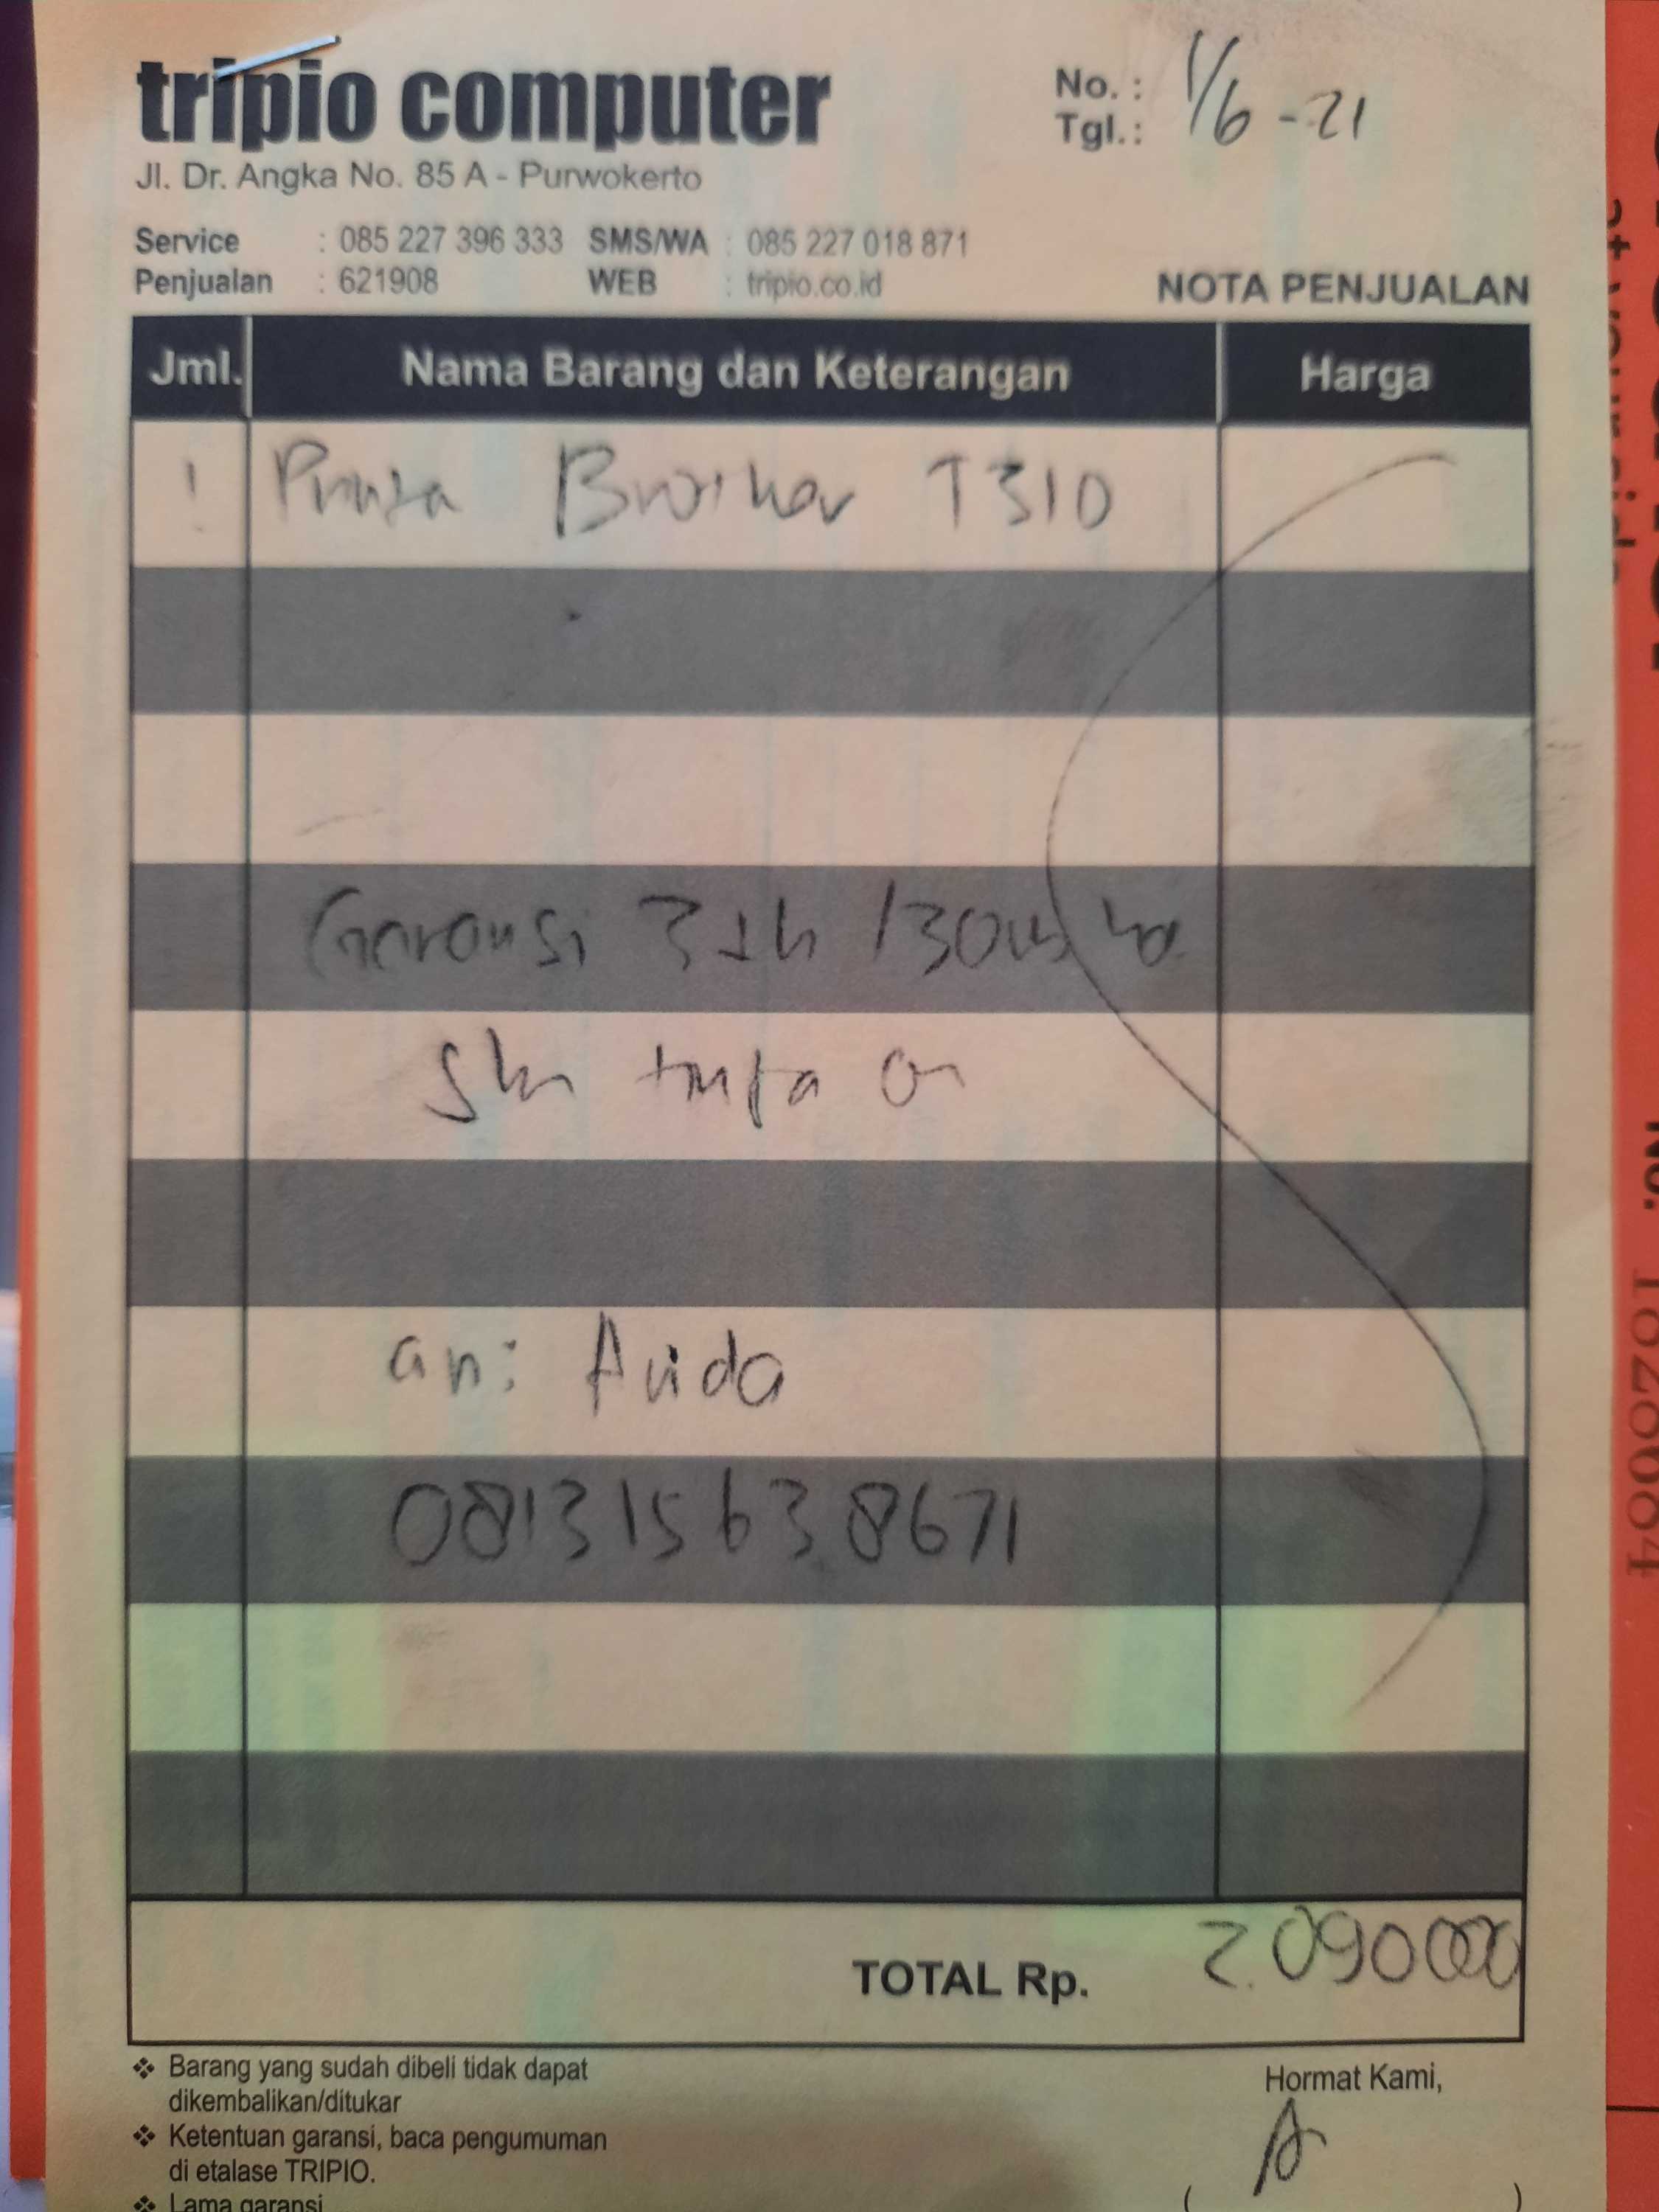 tripio computer
Jl. Dr. Angka No. 85 A - Purwokerto
No. :
Tgl. : 1/6 - 21
Service : 085 227 396 333 SMS/WA : 085 227 018 871
Penjualan : 621908 WEB : tripio.co.id
NOTA PENJUALAN
Jml. Nama Barang dan Keterangan Harga
1 Brother T310
Garansi 3 th /
an:
081315638671
TOTAL Rp. 2.090000
Barang yang sudah dibeli tidak dapat
dikembalikan/ditukar
Ketentuan garansi, baca pengumuman
di etalase TRIPIO.
Lama garansi
Hormat Kami,
( )
No. 10280084